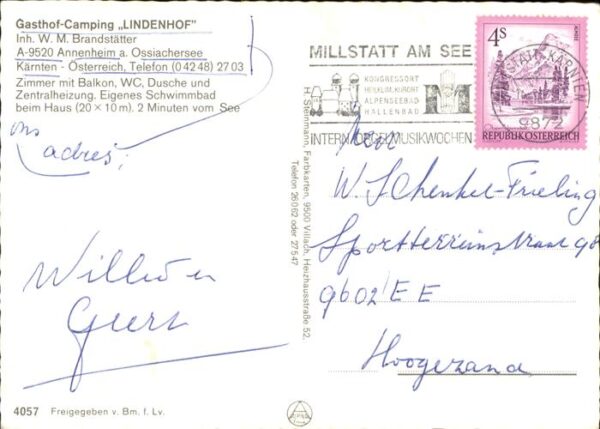 Gasthof-Camping „LINDENHOF"
Inh. W. M. Brandstätter
A-9520 Annenheim a. Ossiachersee
Kärnten - Österreich, Telefon (0 42 48) 27 03
Zimmer mit Balkon, WC, Dusche und
Zentralheizung. Eigenes Schwimmbad
beim Haus (20 × 10 m). 2 Minuten vom See
ons
adres;
Willie en
Geert
4057 Freigegeben v. Bm. f. Lv.
H. Steinmann, Farbkarten, 9500 Villach, Heizhausstraße 52,
Telefon 26062 oder 27547
MILLSTATT AM SEE
KONGRESSORT
HEILKLIM. KURORT
ALPENSEEBAD
HALLENBAD
INTERN. ORGELMUSIKWOCHEN
4S
REPUBLIK ÖSTERREICH
MILLSTATT, KÄRNTEN
9872
Fam
W. Schenkel-Frieling
98
9602 EE
Hoogezand